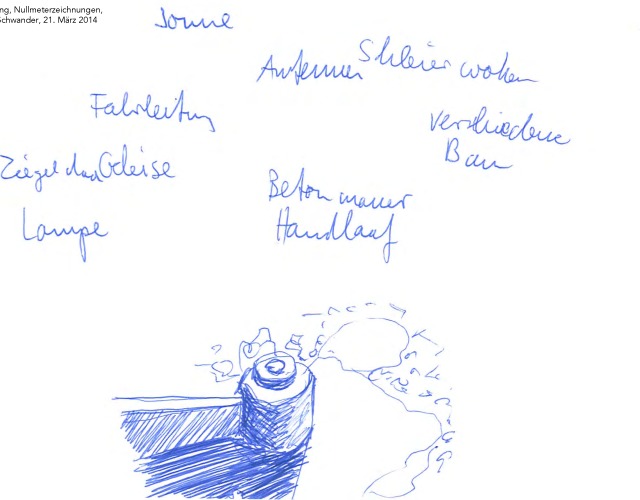 ng, Nullmeterzeichnungen,
Schwander, 21. März 2014
Sonne
Antennen Schleierwolken
Fahrleitung
verschiedene
Bau
Ziegeldach Geleise
Betonmauer
Lampe
Handlauf